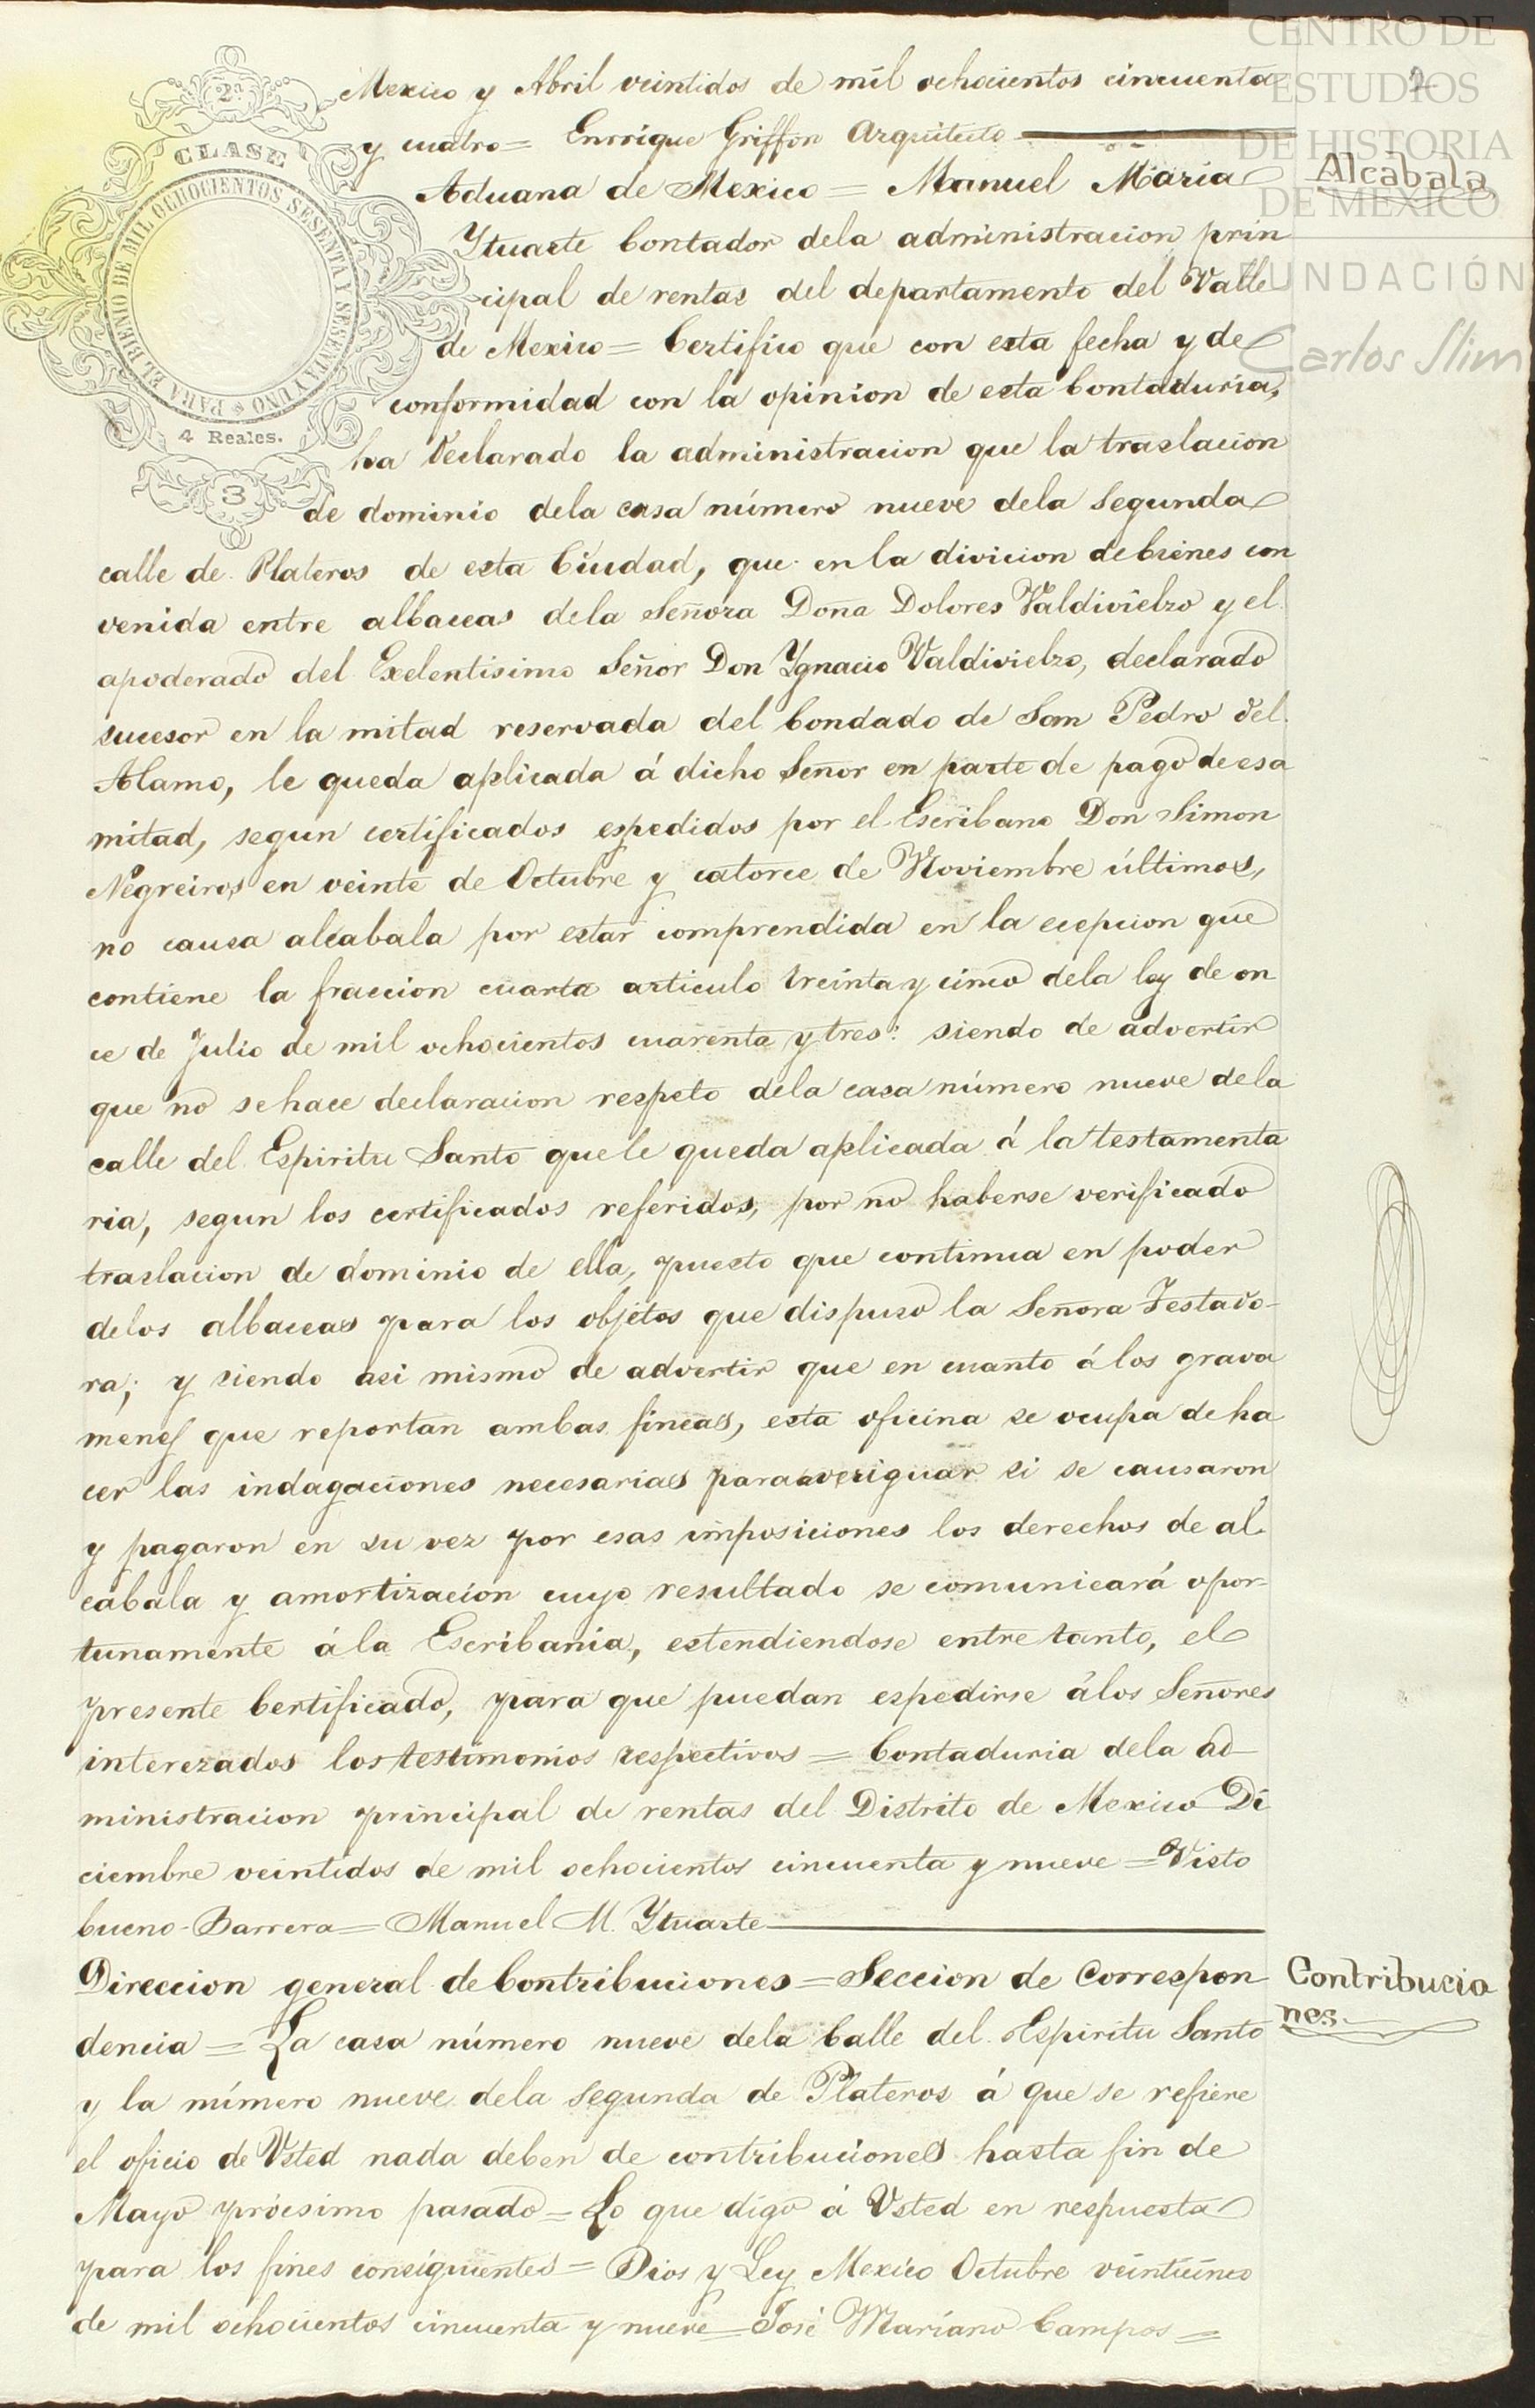 CENTRO DE
ESTUDIOS
DE HISTORIA
DE MEXICO
FUNDACIÓN
Carlos Slim
2
2ª
CLASE
PARA EL BIENIO DE MIL OCHOCIENTOS SESENTA Y SESENTA Y UNO
4 Reales.
3
Mexico y Abril veintidos de mil ochocientos cincuenta
y cuatro = Enrrique Griffon Arquitecto
Alcabala
Aduana de Mexico = Manuel Maria
Ytuarte Contador dela administracion prin
cipal de rentas del departamento del Valle
de Mexico = Certifico que con esta fecha y de
conformidad con la opinion de esta Contaduria,
ha declarado la administracion que la traslacion
de dominio dela casa número nueve dela segunda
calle de Plateros de esta Ciudad, que en la divicion de bienes con
venida entre albaceas dela Señora Doña Dolores Valdivielzo y el
apoderado del Exelentisimo Señor Don Ygnacio Valdivielzo, declarado
sucesor en la mitad reservada del Condado de San Pedro del
Alamo, le queda aplicada á dicho Señor en parte de pago de esa
mitad, segun certificados espedidos por el Escribano Don Simon
Negreiros en veinte de Octubre y catorce de Noviembre últimos,
no causa alcabala por estar comprendida en la ecepcion que
contiene la fraccion cuarta articulo treinta y cinco dela ley de on
ce de Julio de mil ochocientos cuarenta y tres: siendo de advertir
que no se hace declaracion respeto dela casa número nueve dela
calle del Espiritu Santo que le queda aplicada á la testamenta
ria, segun los certificados referidos, por no haberse verificado
traslacion de dominio de ella, puesto que continua en poder
delos albaceas para los objetos que dispuso la Señora Testado-
ra; y siendo asi mismo de advertir que en cuanto á los grava
menes que reportan ambas fincas, esta oficina se ocupa de ha
cer las indagaciones necesarias para averiguar si se causaron
y pagaron en su vez por esas imposiciones los derechos de al-
cabala y amortizacion cuyo resultado se comunicará opor-
tunamente á la Escribania, estendiendose entre tanto, el
presente Certificado, para que puedan espedirse á los Señores
interezados los testimonios respectivos = Contaduria dela ad-
ministracion principal de rentas del Distrito de Mexico Di
ciembre veintidos de mil ochocientos cincuenta y nueve = Visto
bueno - Barrera = Manuel M. Ytuarte
Direccion general de Contribuciones = Seccion de Correspon
Contribucio
nes.
dencia = La casa número nueve dela Calle del Espiritu Santo
y la número nueve dela segunda de Plateros á que se refiere
el oficio de Usted nada deben de contribuciones hasta fin de
Mayo prócsimo pasado = Lo que digo á Usted en respuesta
para los fines consiguientes = Dios y Ley Mexico Octubre veinticinco
de mil ochocientos cincuenta y nueve = José Mariano Campos =